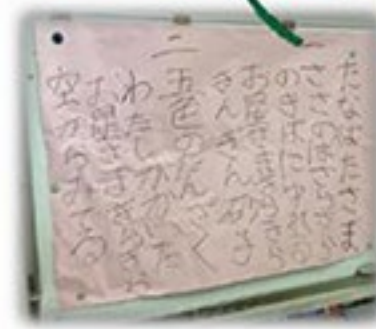 たなばたさま
一
ささのはさらさら
のきばにゆれる
お星さまきらきら
きんぎん砂子
二
五色のたんざく
わたしがかいた
お星さまきらきら
空からみてる